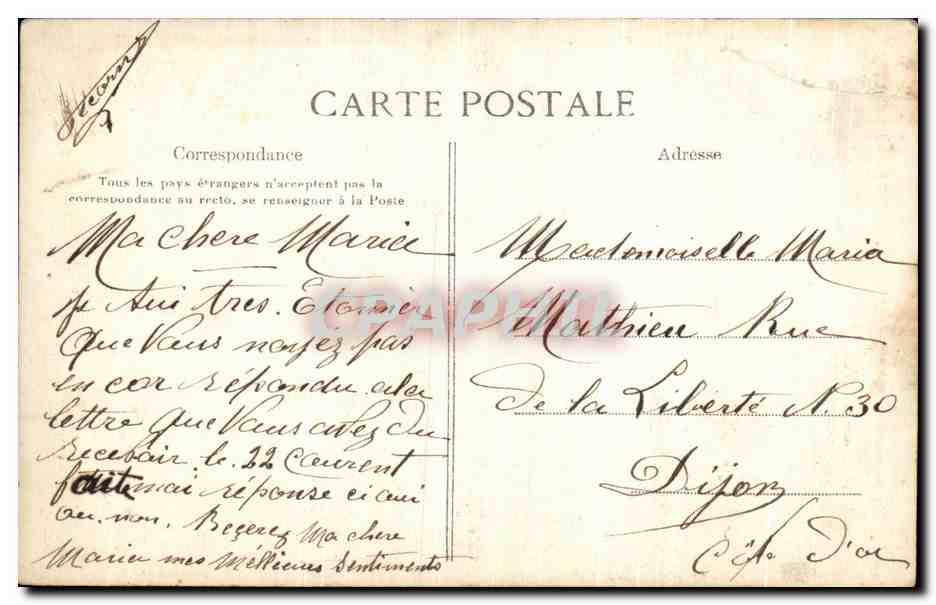 CARTE POSTALE
Correspondance
Tous les pays étrangers n'acceptent pas la
correspondance au recto, se renseigner à la Poste
Ma chere Maria
je sui tres. Etonnér
Que Vous nayez pas
en cor répondu a la
lettre Que Vous avez du
recevoir le. 22 Courent
faite mai réponse ci oui
ou. non. Recerez Ma chere
Maria mes Mellieures Sentiments
Adresse
Mademoiselle Maria
Mathieu Rue
de la Liberté N. 30
Dijon
Côte d'or
CPAPHIL